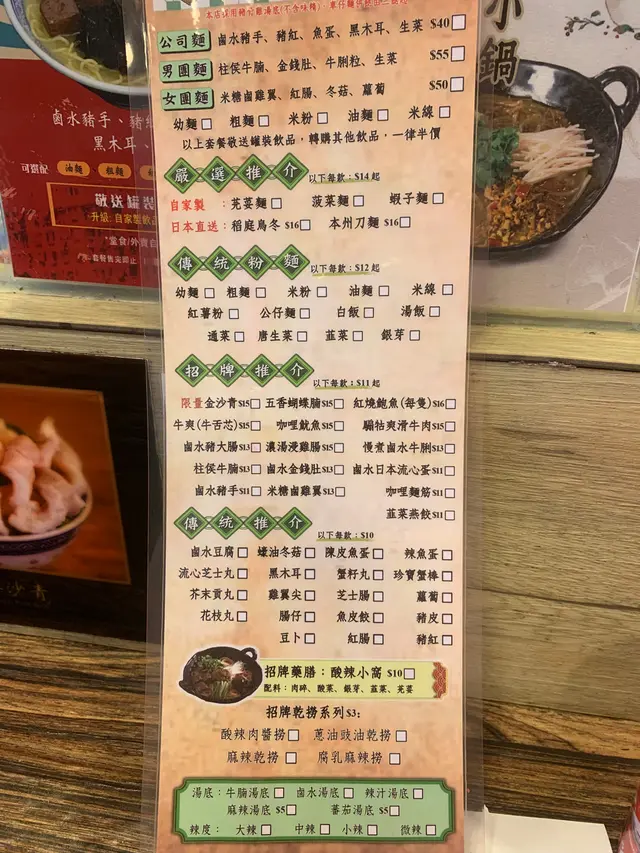 本店採用豬骨雞湯底(不含味精)
公司麵 鹵水豬手、豬紅、魚蛋、黑木耳、生菜 $40
男團麵 柱侯牛腩、金錢肚、牛脷粒、生菜 $55
女團麵 米糖鹵雞翼、紅腸、冬菇、蘿蔔 $50
幼麵 粗麵 米粉 油麵 米線
以上套餐敬送罐裝飲品，轉購其他飲品，一律半價
嚴選推介 以下每款：$14起
自家製：芫荽麵 菠菜麵 蝦子麵
日本直送：稻庭烏冬 $16 本州刀麵 $16
傳統粉麵 以下每款：$12起
幼麵 粗麵 米粉 油麵 米線
紅薯粉 公仔麵 白飯 湯飯
通菜 唐生菜 韮菜 銀芽
招牌推介 以下每款：$11起
限量金沙青$15 五香蝴蝶腩$15 紅燒鮑魚(每隻)$16
牛爽(牛舌芯)$15 咖哩魷魚$15 騸牯爽滑牛肉$15
鹵水豬大腸$13 濃湯浸雞腸$13 慢煮鹵水牛脷$13
柱侯牛腩$13 鹵水金錢肚$13 鹵水日本流心蛋$11
鹵水豬手$11 米糖鹵雞翼$13 咖哩麵筋$11
韮菜燕餃$11
傳統推介 以下每款：$10
鹵水豆腐 蠔油冬菇 陳皮魚蛋 辣魚蛋
流心芝士丸 黑木耳 蟹籽丸 珍寶蟹棒
芥末貢丸 雞翼尖 芝士腸 蘿蔔
花枝丸 腸仔 魚皮餃 豬皮
豆卜 紅腸 豬紅
招牌藥膳：酸辣小窩 $10
配料：肉碎、酸菜、銀芽、韮菜、芫荽
招牌乾撈系列$3:
酸辣肉醬撈 蔥油豉油乾撈
麻辣乾撈 腐乳麻辣撈
湯底：牛腩湯底 鹵水湯底 辣汁湯底
麻辣湯底 $5 蕃茄湯底 $5
辣度： 大辣 中辣 小辣 微辣
鹵水豬手、豬
黑木耳、
可選配 油麵 粗麵
敬送罐裝
升級 自家製飲品
*堂食/外賣自
套餐售完即止
小鍋
沙青